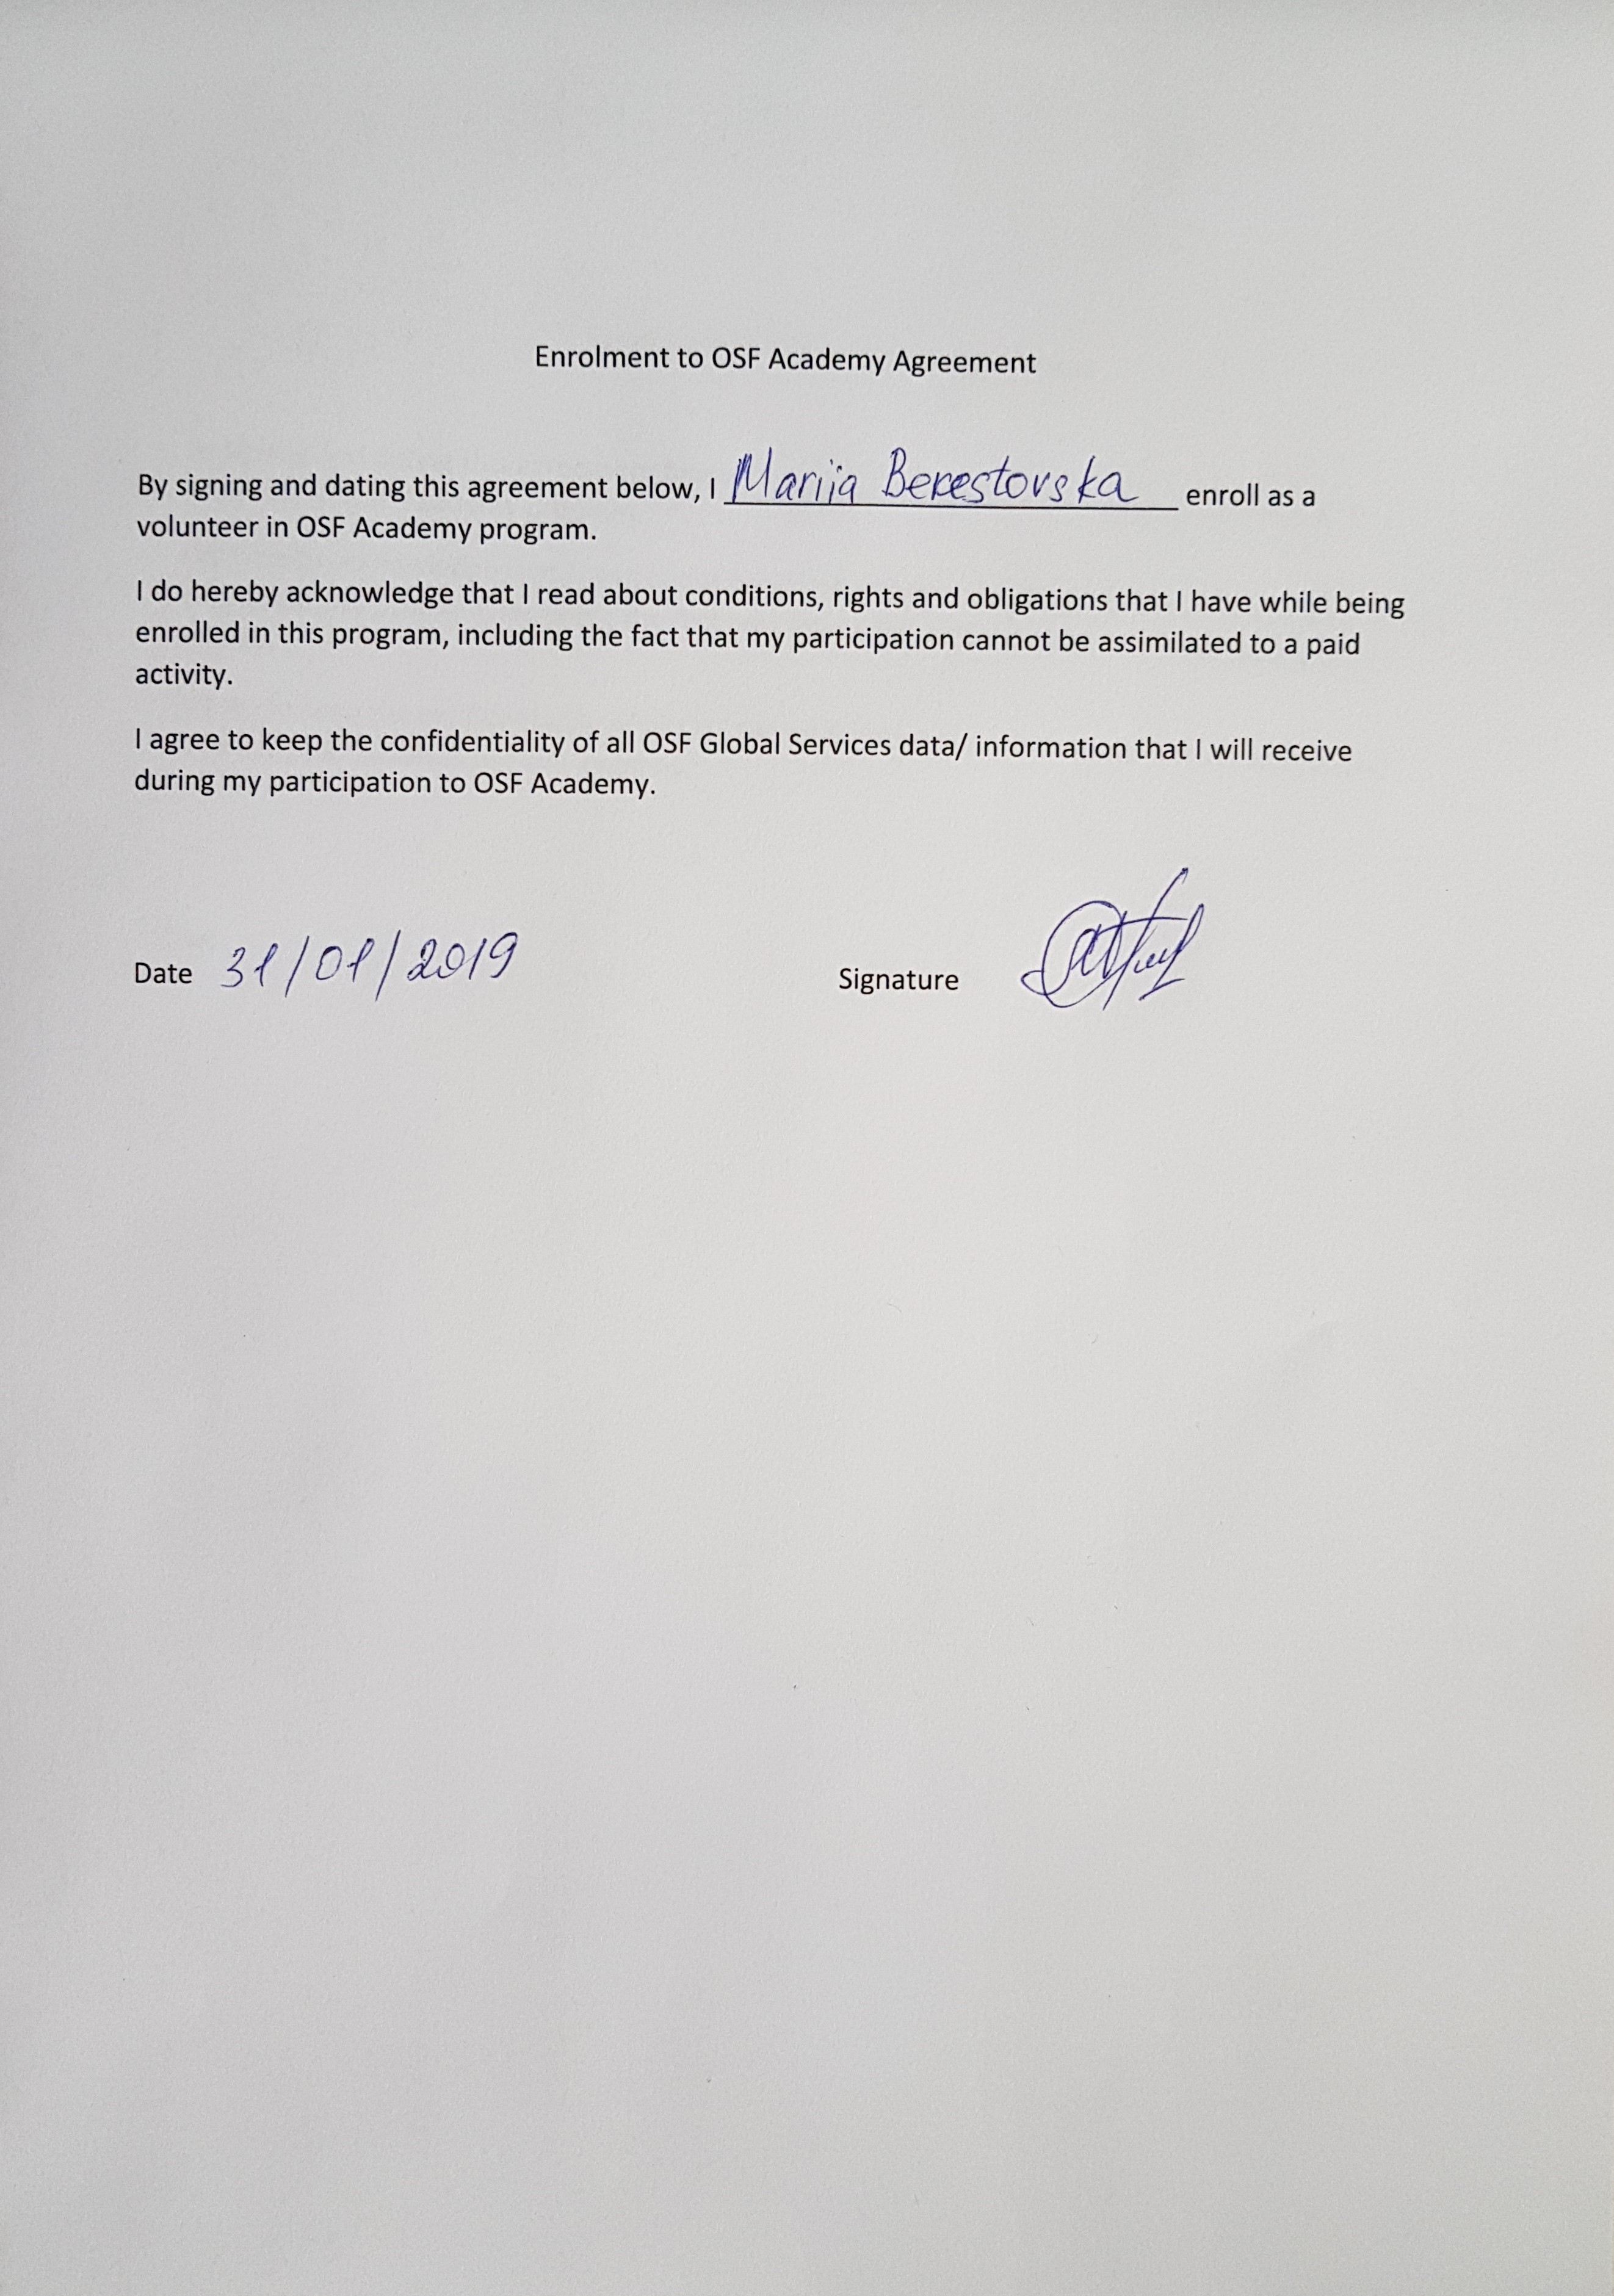 Enrolment to OSF Academy Agreement
By signing and dating this agreement below, I Mariia Berestovska enroll as a
volunteer in OSF Academy program.
I do hereby acknowledge that I read about conditions, rights and obligations that I have while being
enrolled in this program, including the fact that my participation cannot be assimilated to a paid
activity.
I agree to keep the confidentiality of all OSF Global Services data/ information that I will receive
during my participation to OSF Academy.
Date 31/01/2019 Signature